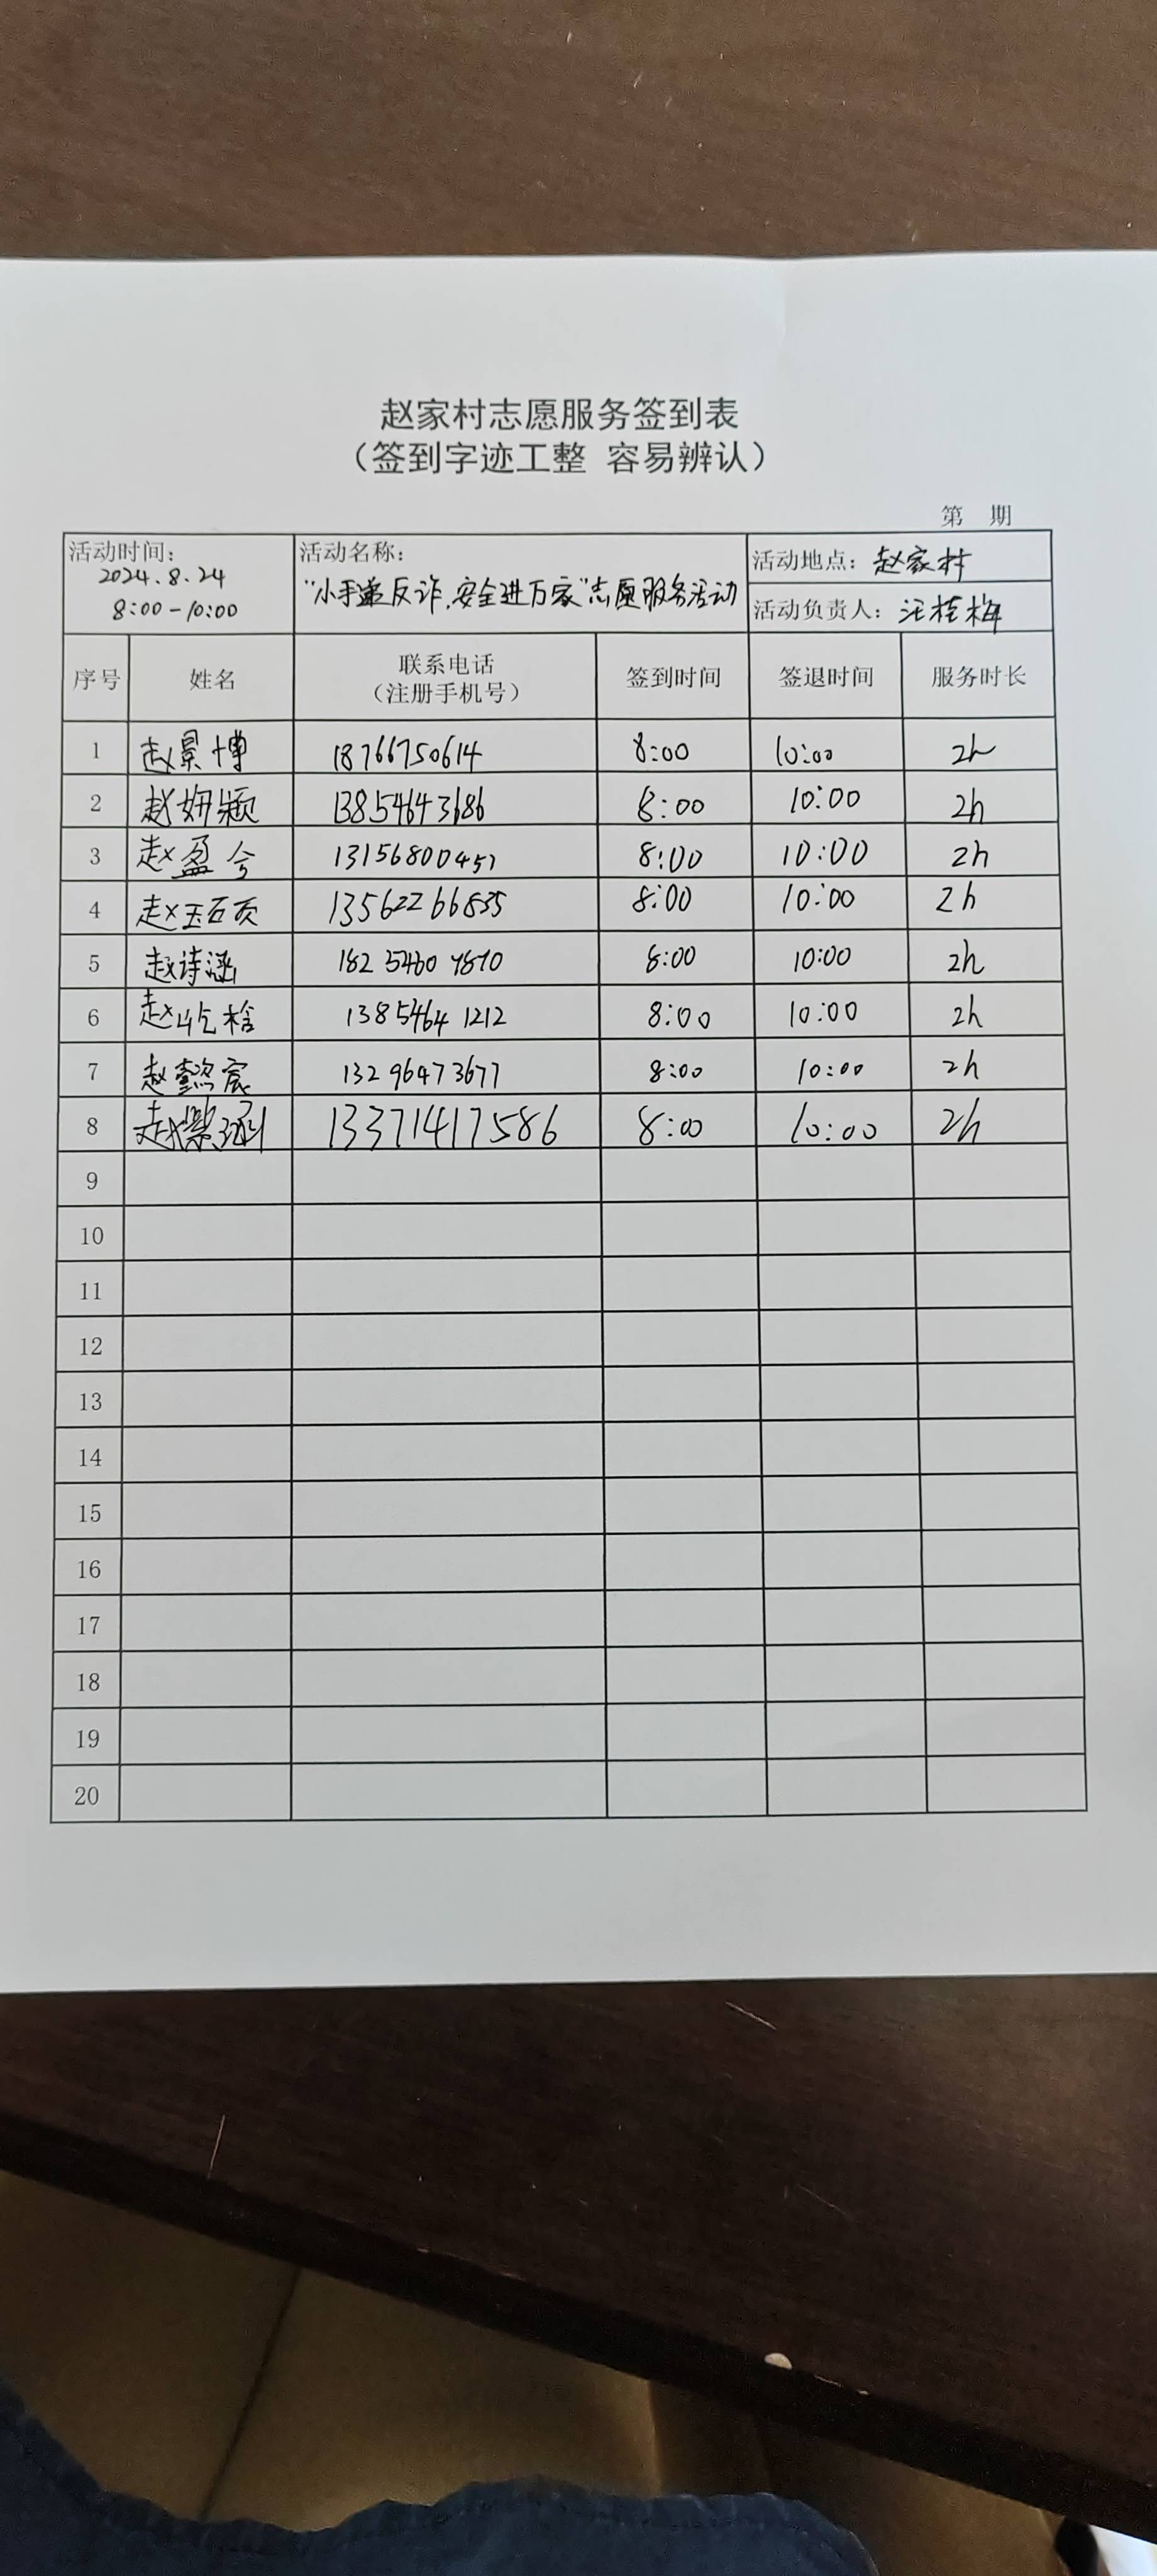 赵家村志愿服务签到表
（签到字迹工整 容易辨认）
第 期
活动时间：
2024.8.24
8:00-10:00
活动名称：
"小手递反诈,安全进万家"志愿服务活动
活动地点：赵家村
活动负责人：汪桂梅
序号 姓名 联系电话（注册手机号） 签到时间 签退时间 服务时长
1 赵景博 18766750614 8:00 10:00 2h
2 赵妍颖 13854643686 8:00 10:00 2h
3 赵盈今 13156800457 8:00 10:00 2h
4 赵玉石页 13562266835 8:00 10:00 2h
5 赵诗涵 182 5460 7870 8:00 10:00 2h
6 赵屹梒 1385464 1212 8:00 10:00 2h
7 赵懿宸 132 9647 3677 8:00 10:00 2h
8 赵 涵 13371417586 8:00 10:00 2h
9
10
11
12
13
14
15
16
17
18
19
20